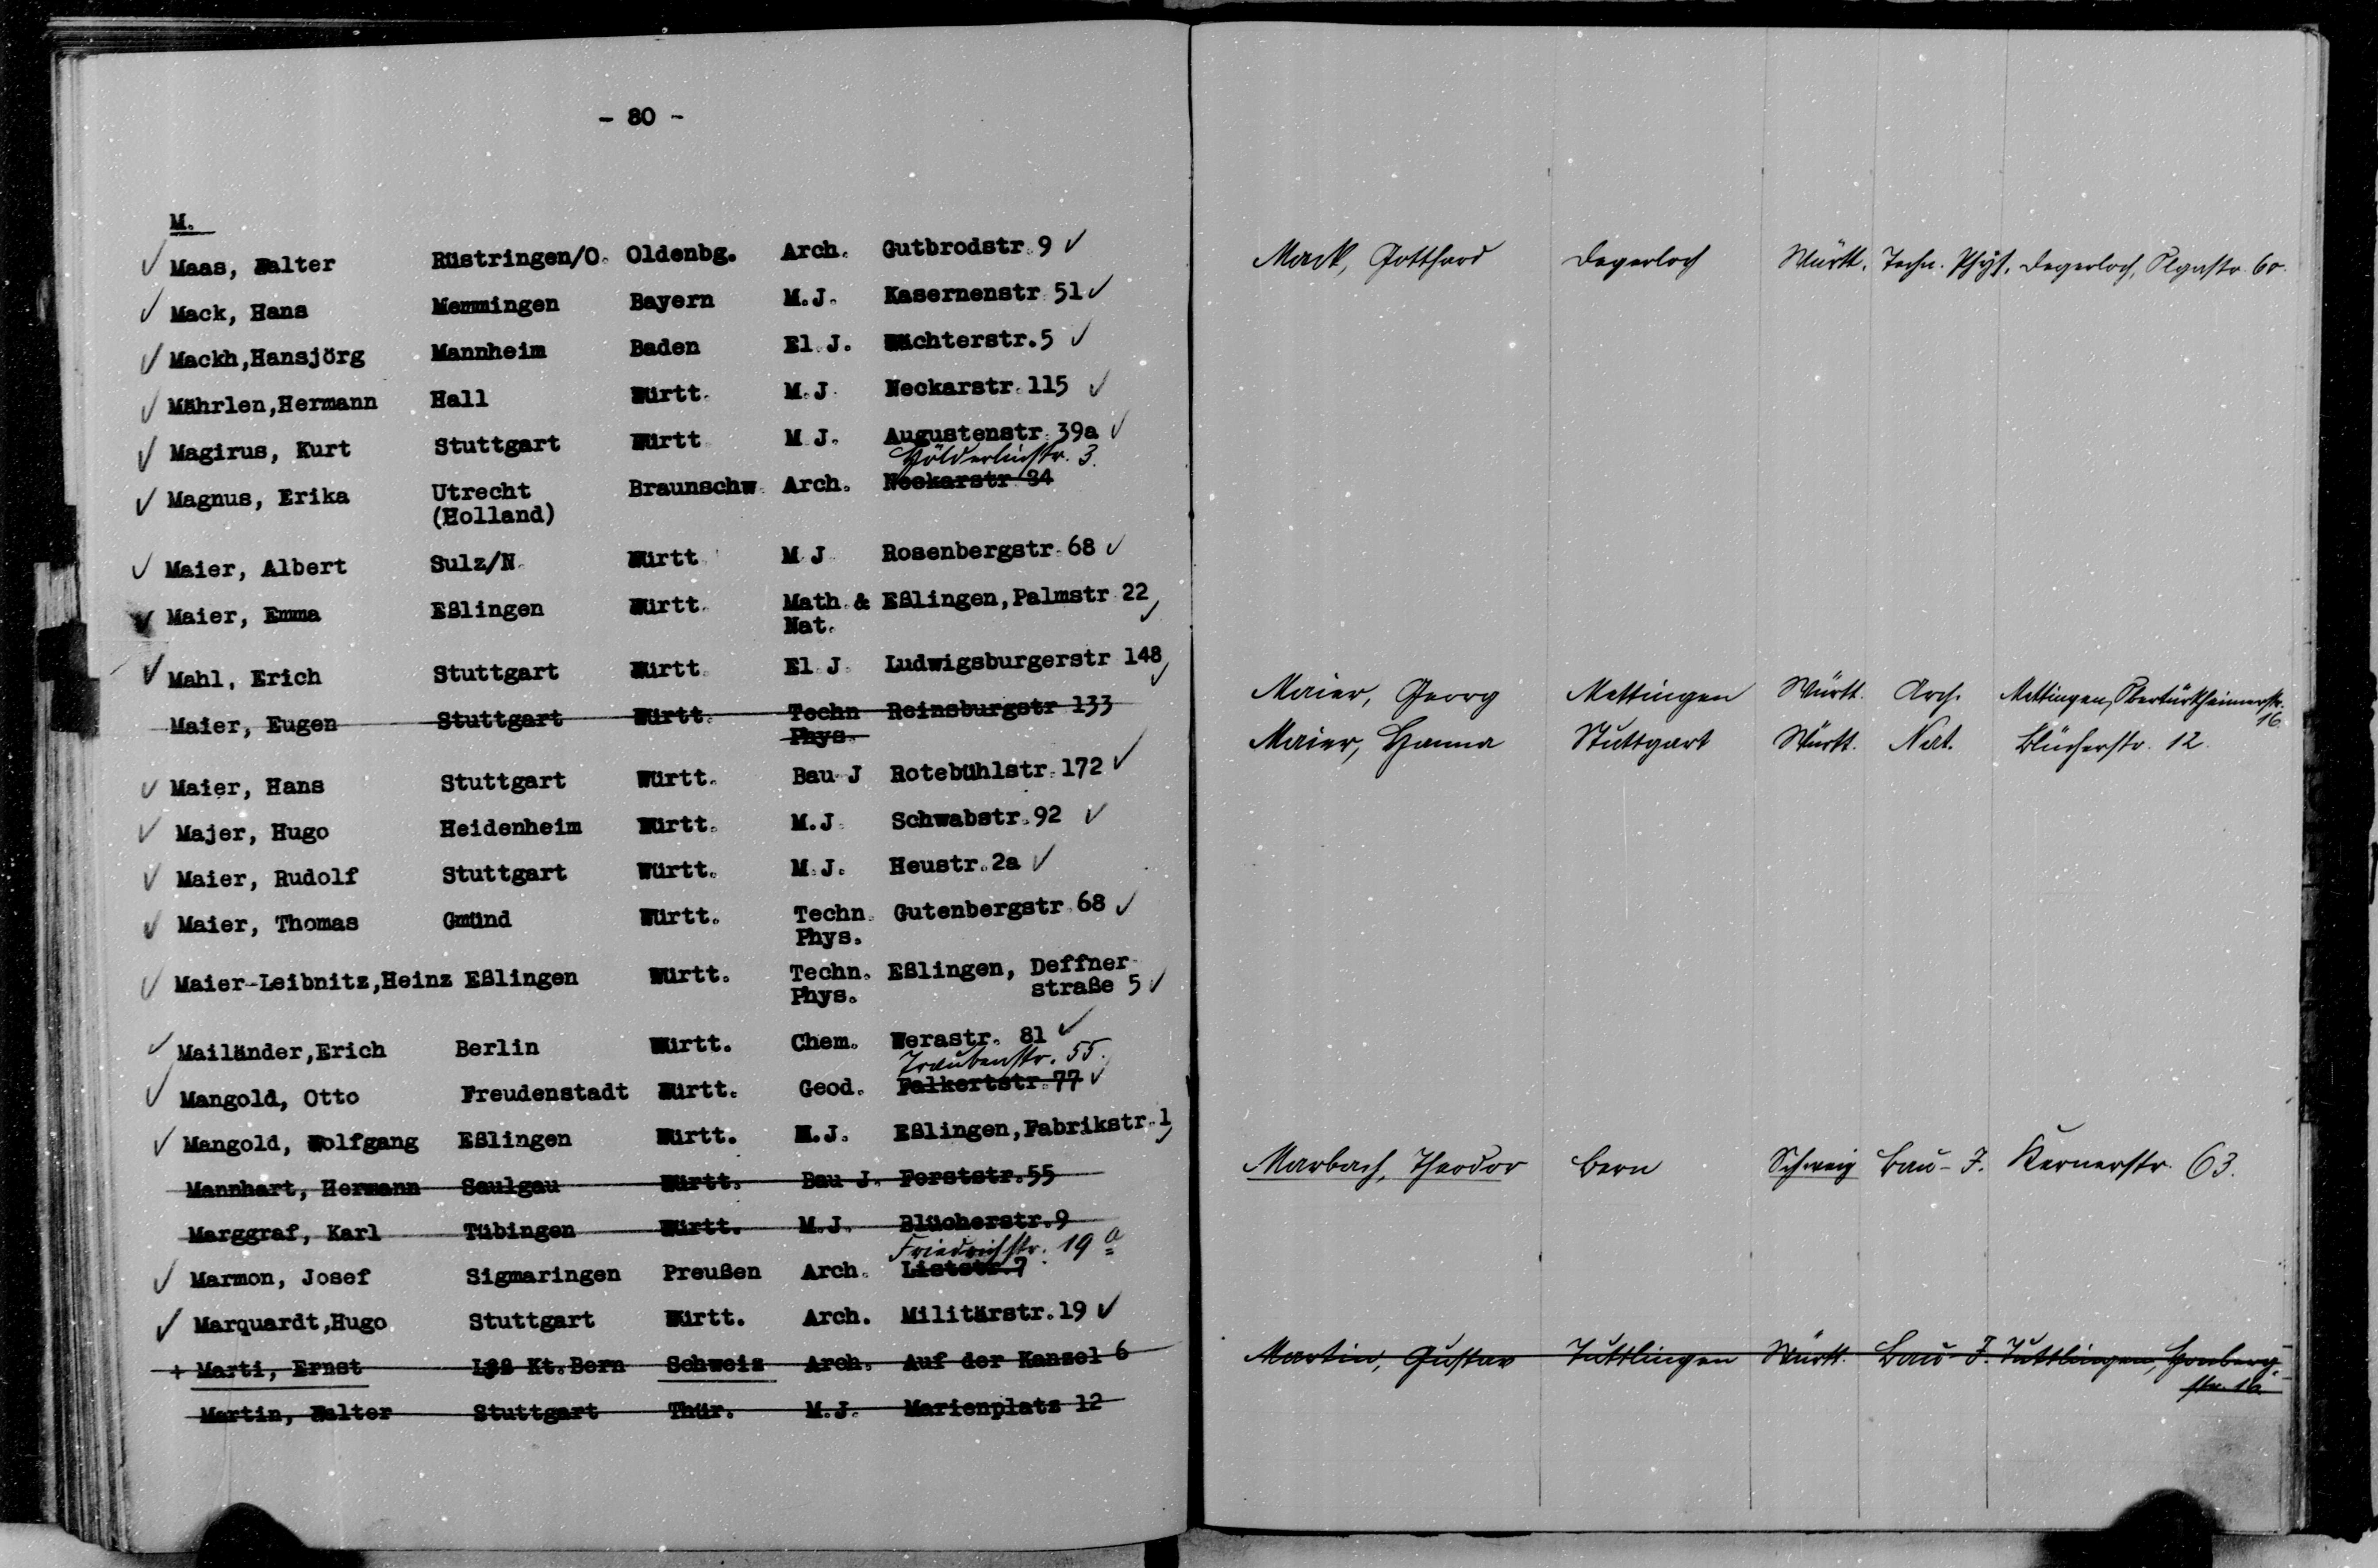 - 80 -
M.
Maas, Walter Rüstringen/O. Oldenbg. Arch. Gutbrodstr. 9
Mack, Hans Memmingen Bayern M.J. Kasernenstr. 51
Mackh,Hansjörg Mannheim Baden El.J. Wächterstr.5
Mährlen,Hermann Hall Württ. M.J. Neckarstr. 115
Magirus, Kurt Stuttgart Württ M J. Augustenstr. 39a
Hölderlinstr. 3.
Magnus, Erika Utrecht Braunschw. Arch. Neckarstr 34
(Holland)
Maier, Albert Sulz/N. Württ M J. Rosenbergstr. 68
Maier, Emma Eßlingen Württ. Math. & Eßlingen,Palmstr 22
Nat.
Mahl, Erich Stuttgart Württ. El J. Ludwigsburgerstr 148
Maier, Eugen Stuttgart Württ. Techn Reinsburgstr 133
Phys.
Maier, Hans Stuttgart Württ. Bau J Rotebühlstr. 172
Majer, Hugo Heidenheim Württ. M.J. Schwabstr. 92
Maier, Rudolf Stuttgart Württ. M.J. Heustr. 2a
Maier, Thomas Gmünd Württ. Techn. Gutenbergstr. 68
Phys.
Maier-Leibnitz,Heinz Eßlingen Württ. Techn. Eßlingen, Deffner-
Phys. straße 5
Mailänder,Erich Berlin Württ. Chem. Werastr. 81
Traubenstr. 55.
Mangold, Otto Freudenstadt Württ. Geod. Falkertstr. 77
Mangold, Wolfgang Eßlingen Württ. M.J. Eßlingen,Fabrikstr. 1
Mannhart, Hermann Saulgau Württ. Bau J. Forststr. 55
Marggraf, Karl Tübingen Württ. M.J. Blücherstr. 9
Friedrichstr. 19 a
Marmon, Josef Sigmaringen Preußen Arch. Liststr. 7
Marquardt,Hugo Stuttgart Württ. Arch. Militärstr. 19
+ Marti, Ernst Kt. Bern Schweiz Arch. Auf der Kanzel 6
Martin, Walter Stuttgart Thür. M.J. Marienplatz 12
Mack, Gotthard Degerloch Württ. Techn. Phys. Degerloch, Olgastr. 60.
Maier, Georg Mettingen Württ. Arch. Mettingen, Obertürkheimerstr.
16.
Maier, Hanna Stuttgart Württ. Nat. Blücherstr. 12.
Marbach, Theodor Bern Schweiz Bau-J. Kernerstr. 63.
Martin, Gustav Tuttlingen Württ. Bau-J. Tuttlingen, Honberg-
str. 16.